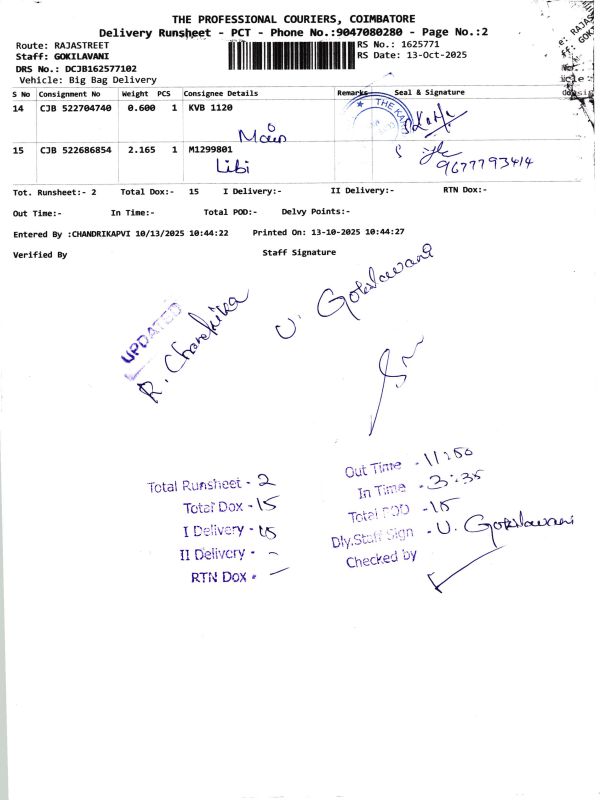 THE PROFESSIONAL COURIERS, COIMBATORE
Delivery Runsheet - PCT - Phone No.:9047080280 - Page No.:2
Route: RAJASTREET
RS No.: 1625771
Staff: GOKILAVANI
RS Date: 13-Oct-2025
DRS No.: DCJB162577102
Vehicle: Big Bag Delivery
S No Consignment No Weight PCS Consignee Details Remarks Seal & Signature
14 CJB 522704740 0.600 1 KVB 1120
THE KA
Main
15 CJB 522686854 2.165 1 M1299801
Libi
9677793414
Tot. Runsheet:- 2 Total Dox:- 15 I Delivery:- II Delivery:- RTN Dox:-
Out Time:- In Time:- Total POD:- Delvy Points:-
Entered By :CHANDRIKAPVI 10/13/2025 10:44:22 Printed On: 13-10-2025 10:44:27
Verified By Staff Signature
UPDATED
R. Chandrika
U. Gokilavani
Total Runsheet - 2
Total Dox - 15
I Delivery - 15
II Delivery - -
RTN Dox - -
Out Time - 11:50
In Time - 3:35
Total POD - 15
Dly.Staff Sign - U. Gokilavani
Checked by